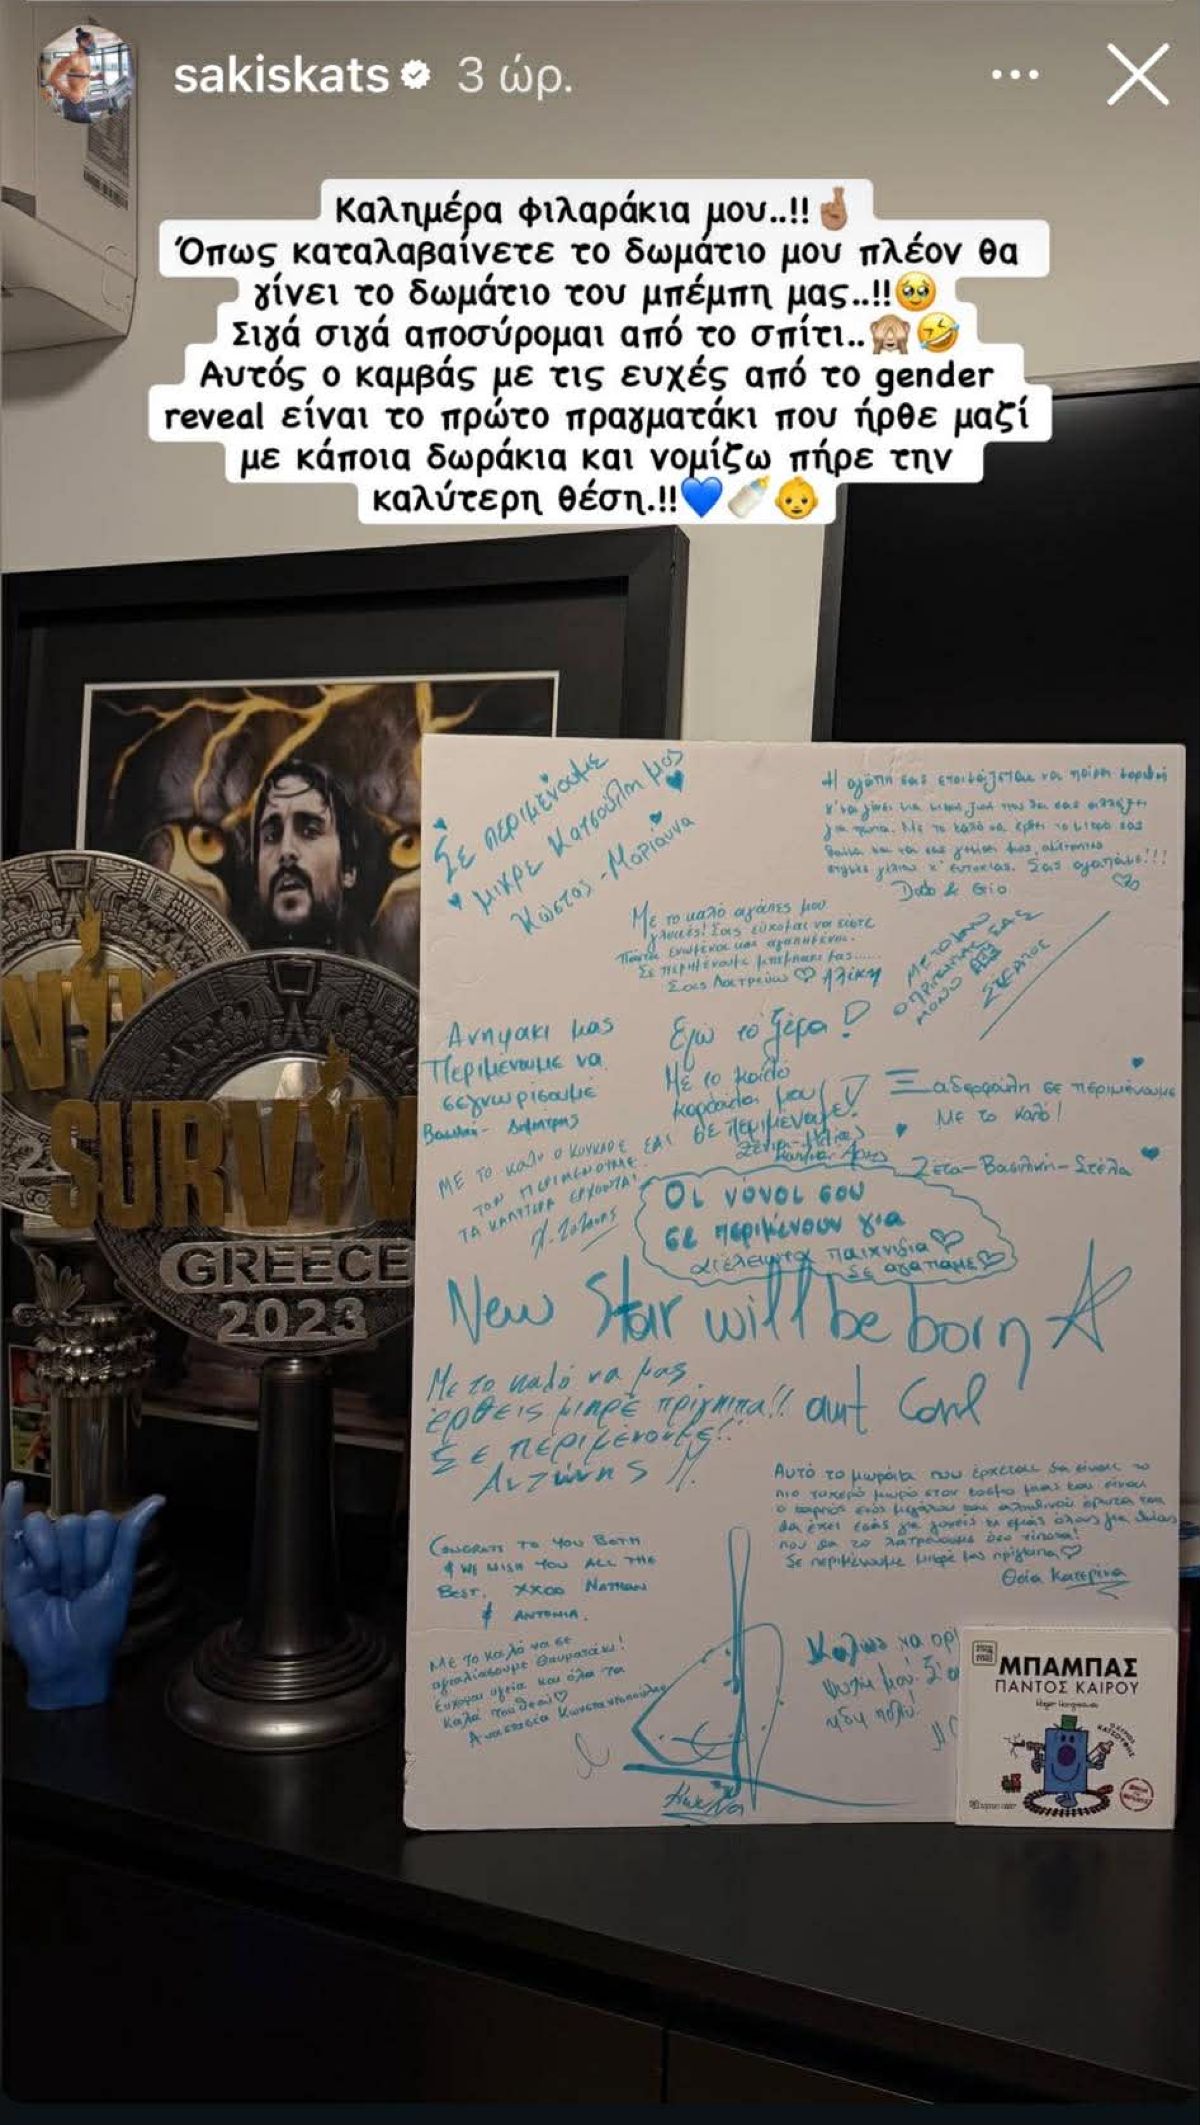 sakiskats 3 ώρ.
Καλημέρα φιλαράκια μου..!!🤞🏽
Όπως καταλαβαίνετε το δωμάτιο μου πλέον θα
γίνει το δωμάτιο του μπέμπη μας..!!🥹
Σιγά σιγά αποσύρομαι από το σπίτι..🙈🤣
Αυτός ο καμβάς με τις ευχές από το gender
reveal είναι το πρώτο πραγματάκι που ήρθε μαζί
με κάποια δωράκια και νομίζω πήρε την
καλύτερη θέση.!!💙🍼👶
SURVIV
GREECE
2023
Σε περιμένουμε
μικρέ Κατσούλη μας
Κώστας - Μαριάννα
Η αγάπη σας ετοιμάζεται να πάρει μορφή
για πάντα. Με το καλό να έρθει το μικρό σας
Σας αγαπάμε!!!
& Gio
Με το καλό αγάπες μου
γλυκές! Σας εύχομαι να είστε
πάντα ενωμένοι και αγαπημένοι.
Σε περιμένουμε μπεμπάκι μας......
Σας λατρεύω ♡ Αλίκη
ΜΟΝΟ
ΣΤΕΦΑΝΟΣ
Ανηψάκι μας
Περιμένουμε να
σε γνωρίσουμε
Δημήτρης
Εγώ το ξερα!
Με το καλό
μου!
σε περιμένουμε!
Ξαδερφούλη σε περιμένουμε
Με το καλό!
Ζέτα-Βασιλική-Στέλα
ΜΕ ΤΟ ΚΑΛΟ Ο ΚΟΥΚΛΟΣ ΣΑΣ
ΤΟΝ ΠΕΡΙΜΕΝΟΥΜΕ
ΤΑ ΚΑΛΥΤΕΡΑ ΕΡΧΟΝΤΑΙ
Οι νονοί σου
σε περιμένουν για
ατέλειωτα παιχνίδια ♡
Σε αγαπάμε ♡
New Star will be born
aunt
Με το καλό να μας
έρθεις μικρέ πρίγκιπα!!
Σε περιμένουμε!!
Αντώνης
Αυτό το μωράκι που έρχεται θα είναι το
πιο τυχερό μωρό στον κόσμο μιας και είναι
ο καρπός ενός μεγάλου και αληθινού έρωτα και
θα έχει εσάς για γονείς κι εμάς όλους για θείους
που θα το λατρεύουμε όσο τίποτα!
Σε περιμένουμε μικρέ μας πρίγκιπα ♡
Θεία Κατερίνα
CONGRATS TO YOU BOTH
& WE WISH YOU ALL THE
BEST. XXOO NATHAN
& ANTONIA.
Με το καλό να σε
αγκαλιάσουμε θαυματάκι!
Εύχομαι υγεία και όλα τα
καλά του Θεού ♡
Αναστασία Κωνσταντοπούλου
Καλώς να
μου!
ήδη πολύ!
ΜΠΑΜΠΑΣ
ΠΑΝΤΟΣ ΚΑΙΡΟΥ
Roger Hargreaves
Ο ΚΥΡΙΟΣ
ΚΑΤΣΟΥΦΗΣ